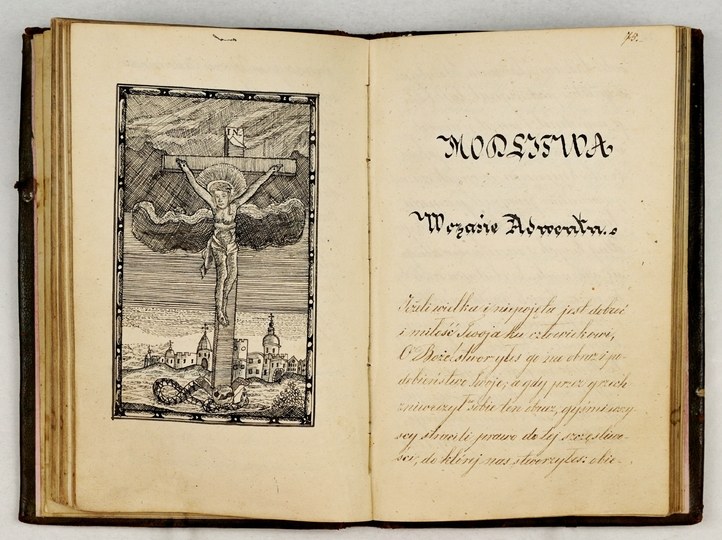 IN.
73.
MODLITWA
Wczasie Adwentu.
Jżeli wielka i niepojęta jest dobroć
i miłość Twoja ku człowiekowi,
O Boże, stworzyłeś go na obraz i po-
dobieństwo Twoje; a gdy przez grzech
zniweczył sobie ten obraz, gdyśmy wszy-
scy stracili prawo do tej szczęśliwo-
ści, do której nas stworzyłeś: obie-